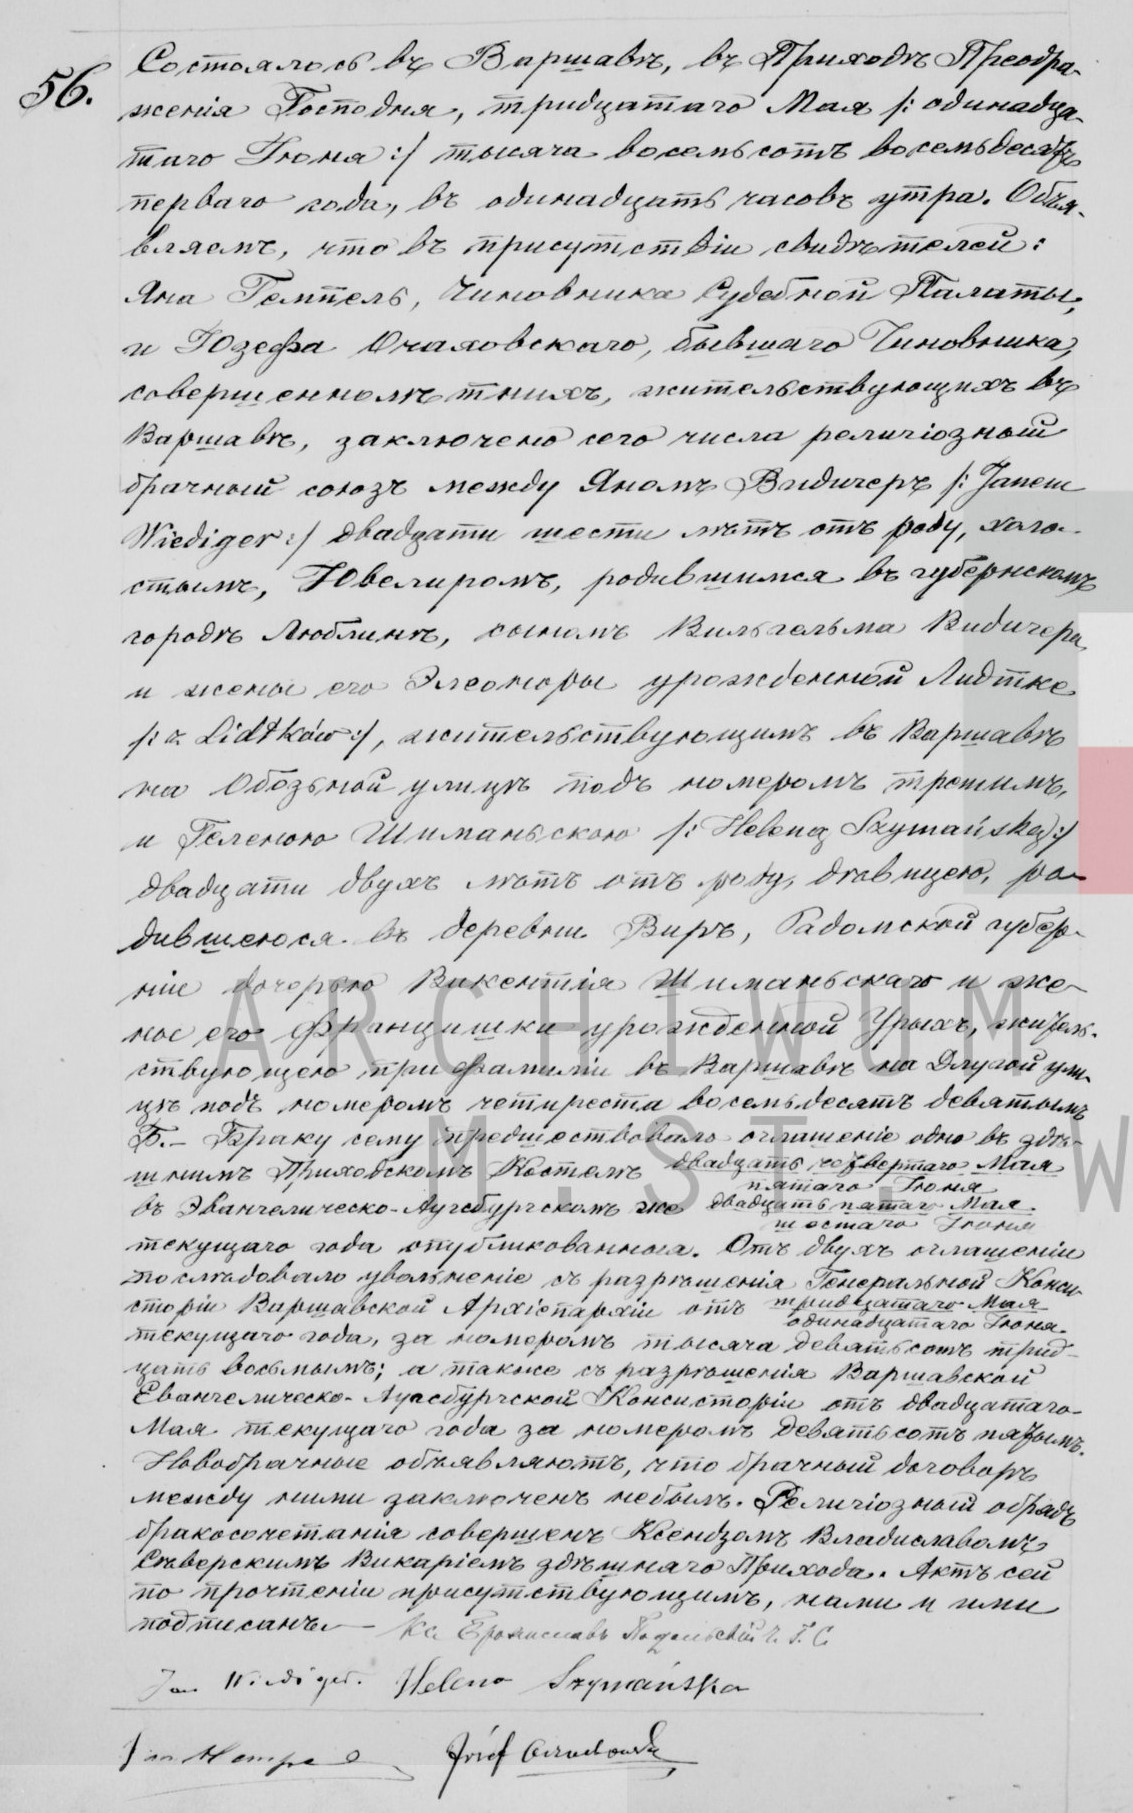 56.
Состоялось въ Варшавѣ, въ Приходѣ Преобра-
женія Господня, тридцатаго Мая /: одинадца-
таго Іюня :/ тысяча восемьсотъ восемьдесятъ
перваго года, въ одинадцать часовъ утра. Объя-
вляемъ, что въ присутствіи свидѣтелей:
Яна Гемпель, Чиновника Судебной Палаты,
и Юзефа Очаховскаго, бывшаго Чиновника,
совершеннолѣтнихъ, жительствующихъ въ
Варшавѣ, заключено сего числа религіозный
брачный союзъ между Яномъ Видигеръ /: Janem
Wiediger :/ двадцати шести лѣтъ отъ роду, холо-
стымъ, Ювелиромъ, родившимся въ губернскомъ
городѣ Люблинѣ, сыномъ Вильгельма Видигера
и жены его Элеоноры урожденной Лидтке
/: z Lidtków :/, жительствующимъ въ Варшавѣ
на Обозьной улицѣ подъ номеромъ третимъ,
и Геленою Шиманьскою /: Heleną Szymańską :/
двадцати двухъ лѣтъ отъ роду, дѣвицею, ро-
дившеюся въ деревни Виръ, Радомской губер-
ніи дочерью Викентія Шиманьскаго и же-
ны его Францишки урожденной Урыхъ, житель-
ствующею при фамиліи въ Варшавѣ на Длугой ули-
цѣ подъ номеромъ четыреста восемьдесятъ девятымъ
Б. – Браку сему предшествовало оглашеніе одно въ здѣ-
шнимъ Приходскомъ Костелѣ двадцать четвертаго Мая
пятаго Іюня
въ Эвангелическо-Аугсбургскомъ же двадцать пятаго Мая
шестаго Іюня
текущаго года опубликованныя. Отъ двухъ оглашеніи
послѣдовало увольненіе съ разрѣшенія Генеральной Конси-
сторіи Варшавской Архіепархіи отъ тридцатаго Мая
одинадцатаго Іюня
текущаго года, за номеромъ тысяча девятьсотъ трид-
цать восьмымъ; а также съ разрѣшенія Варшавской
Евангелическо-Аугсбургской Консисторіи отъ двадцатаго
Мая текущаго года за номеромъ девятьсотъ пятымъ.
Новобрачные объявляютъ, что брачный договоръ
между ними заключенъ небылъ. Религіозный обрядъ
бракосочетанія совершенъ Ксендзомъ Владиславомъ
Сѣверскимъ Викаріемъ здѣшняго Прихода. Актъ сей
по прочтеніи присутствующимъ, нами и ими
подписанъ. Кс.
Jan Wiediger. Helena Szymańska
Jan Hempel Józef
ARCHIWUM
M. ST. W